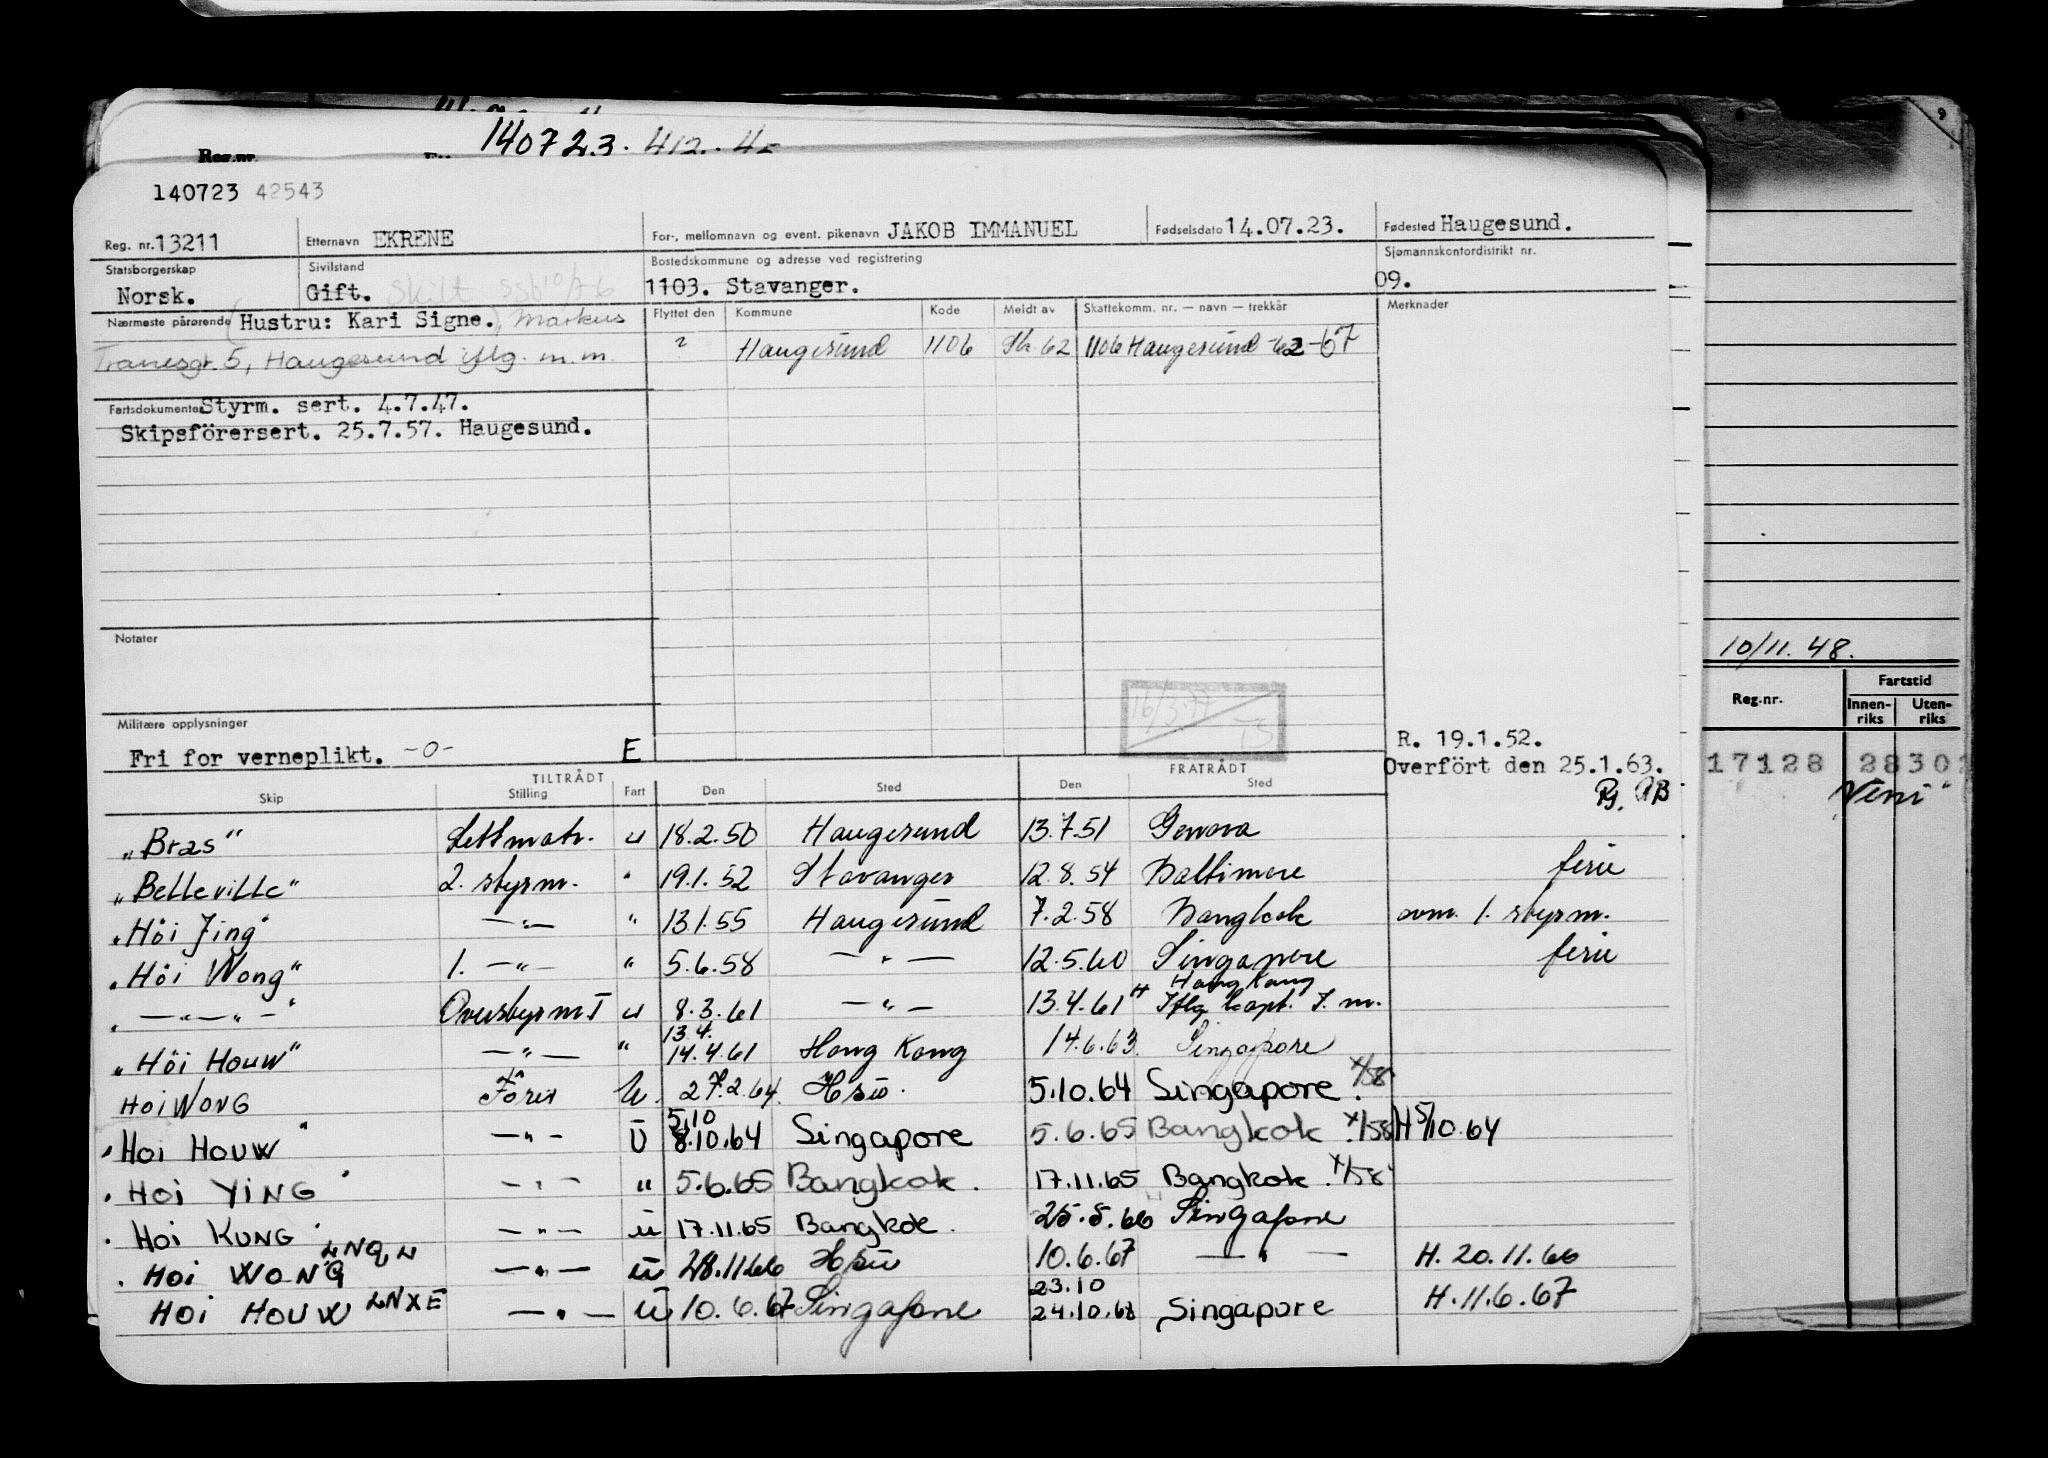 140723. 412. 4
Reg.nr.
140723 42543
Reg. nr. 13211 Etternavn EKRENE For-, mellomnavn og event. pikenavn JAKOB IMMANUEL Fødselsdato 14.07.23. Fødested Haugesund.
Statsborgerskap Norsk. Sivilstand Gift. Skilt SSb 10/7-6 Bostedskommune og adresse ved registrering 1103. Stavanger. Sjømannskontordistrikt nr. 09.
Nærmeste pårørende (Hustru: Kari Signe.) Markus Flyttet den Kommune Kode Meldt av Skattekomm. nr. — navn — trekkår Merknader
Tranesgt. 5, Haugesund iflg. m.m. ? Haugesund 1106 Sk 62 1106 Haugesund -62-67
Fartsdokumenter Styrm. sert. 4.7.47.
Skipsförersert. 25.7.57. Haugesund.
Notater
10/11. 48.
Reg.nr. Fartstid
Innen-riks Uten-riks
16/3.77
TS
Militære opplysninger
Fri for verneplikt. -0- E
R. 19.1.52.
Overfört den 25.1.63.
17128 2830
TILTRÅDT FRATRÅDT
Skip Stilling Fart Den Sted Den Sted
"Bras" Lettmatr. u 18.2.50 Haugesund 13.7.51 Genova
"Belleville" 2. styrm. " 19.1.52 Stavanger 12.8.54 Baltimore ferie
"Höi Jing" —"— " 13.1.55 Haugesund 7.2.58 Bangkok avm. 1. styrm.
"Höi Wong" 1. —"— " 5.6.58 —"— 12.5.60 Singapore ferie
" —"—"— " Overstyrm I u 8.3.61 —"— 13.4.61 Hong Kong Iflg kapt. J. m.
"Höi Houw" —"— " 13.4. 14.4.61 Hong Kong 14.6.63. Singapore
HOI WONG Förer U. 27.2.64. Hsu. 5.10.64 Singapore. x/58
"HOI HOUW" —"— U 5.10 8.10.64 Singapore 5.6.65 Bangkok x/58 H 5/10.64
"HOI YING" —"— " 5.6.65 Bangkok. 17.11.65 Bangkok. x/58
"HOI KUNG" —"— u 17.11.65 Bangkok. 25.5.66 Singapore
"HOI WONG LNQL —"— u 28.11.66 Hsu 10.6.67 —"— H. 20.11.66
HOI HOUW LNXE —"— u 10.6.67 Singapore 23.10 24.10.68 Singapore H. 11.6.67